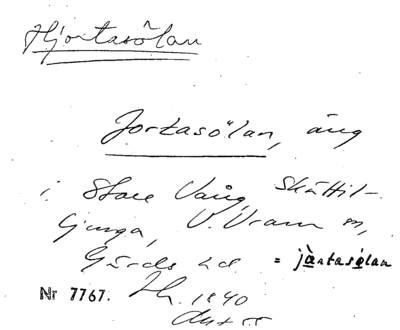 Hjortasölan
Jortasölan, äng
i Store Vång, Skättil-
ljunga, V. Vram sn,
Gärds hd = jàntasölan
Nr 7767. 1940